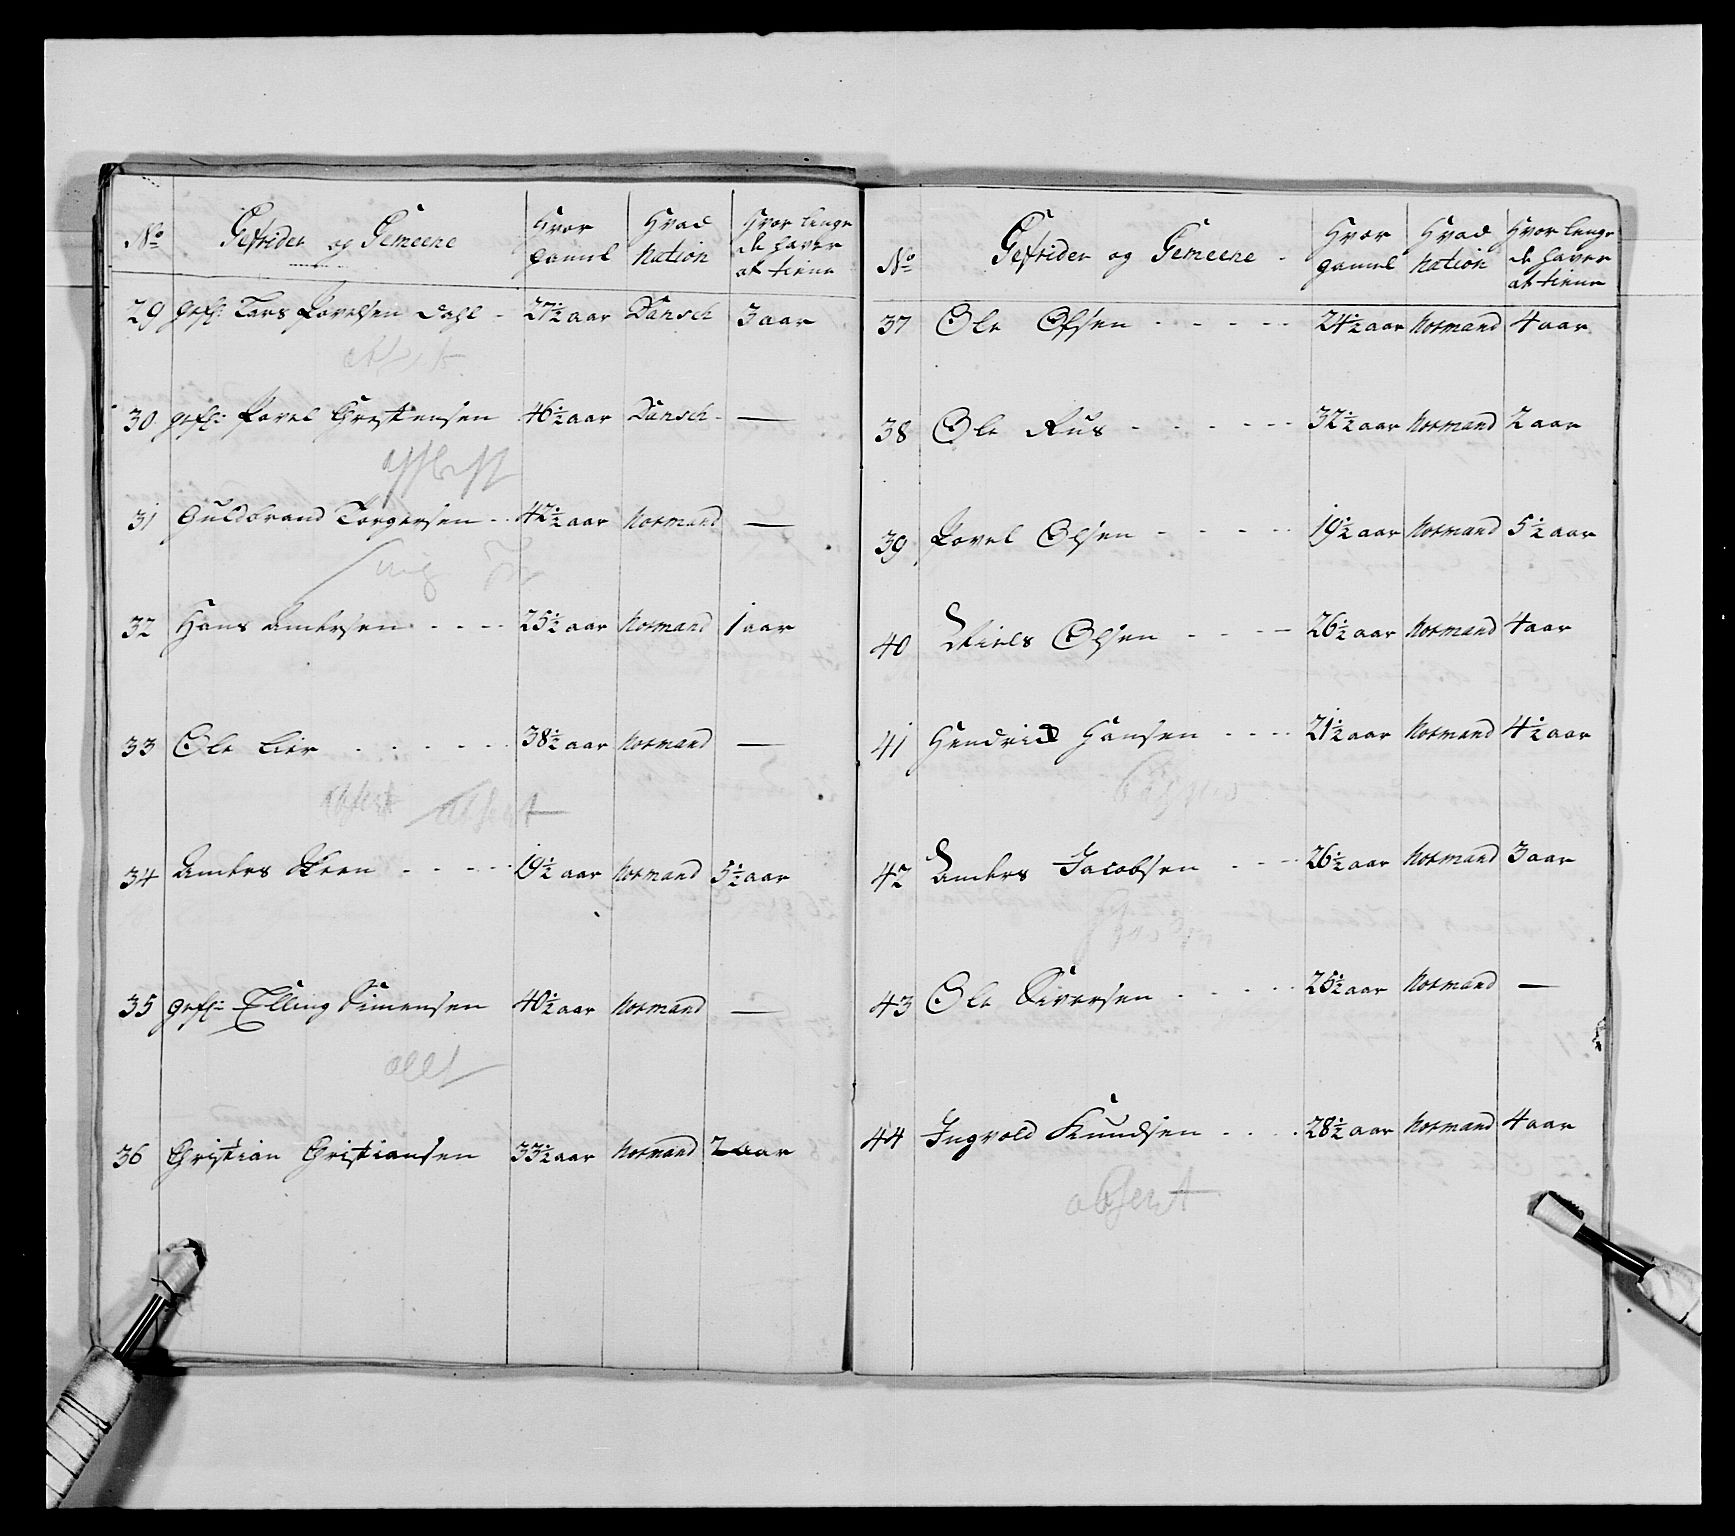 No Gefrider og Gemeene Hvor gamel Hvad Nation Hvor lenge de haver at tiene
29 gefr: Lars Povelsen Dahl - 27½ aar Dansch 3 aar
30 gefr: Povel Christensen 46½ aar Dansch - —
31 Guldbrand Torgersen - - 42½ aar Normand —
32 Hans Andersen - - - - 25½ aar Normand 1 aar
33 Ole Lier - - - - - 38½ aar Normand —
absent absent
34 Anders Skeen - - - - 19½ aar Normand 5½ aar
35 gefr: Elling Simensen 40½ aar Normand —
36 Christian Christiansen 33½ aar Normand 2 aar
No Gefrider og Gemeene - Hvor gamel Hvad Nation Hvor lenge de haver at tiene
37 Ole Olsen - - - - - 24½ aar Normand 4 aar
38 Ole Rus - - - - - - 32½ aar Normand 2 aar
39 Povel Olsen - - - - - 19½ aar Normand 5½ aar
40 Niels Olsen - - - - 26½ aar Normand 4 aar
41 Hendric Hansen - - - - 21½ aar Normand 4½ aar
42 Anders Jacobsen - - - 26½ aar Normand 3 aar
43 Ole Siversen - - - - - 25½ aar Normand —
44 Ingvold Knudsen - - - - 28½ aar Normand 4 aar
absent